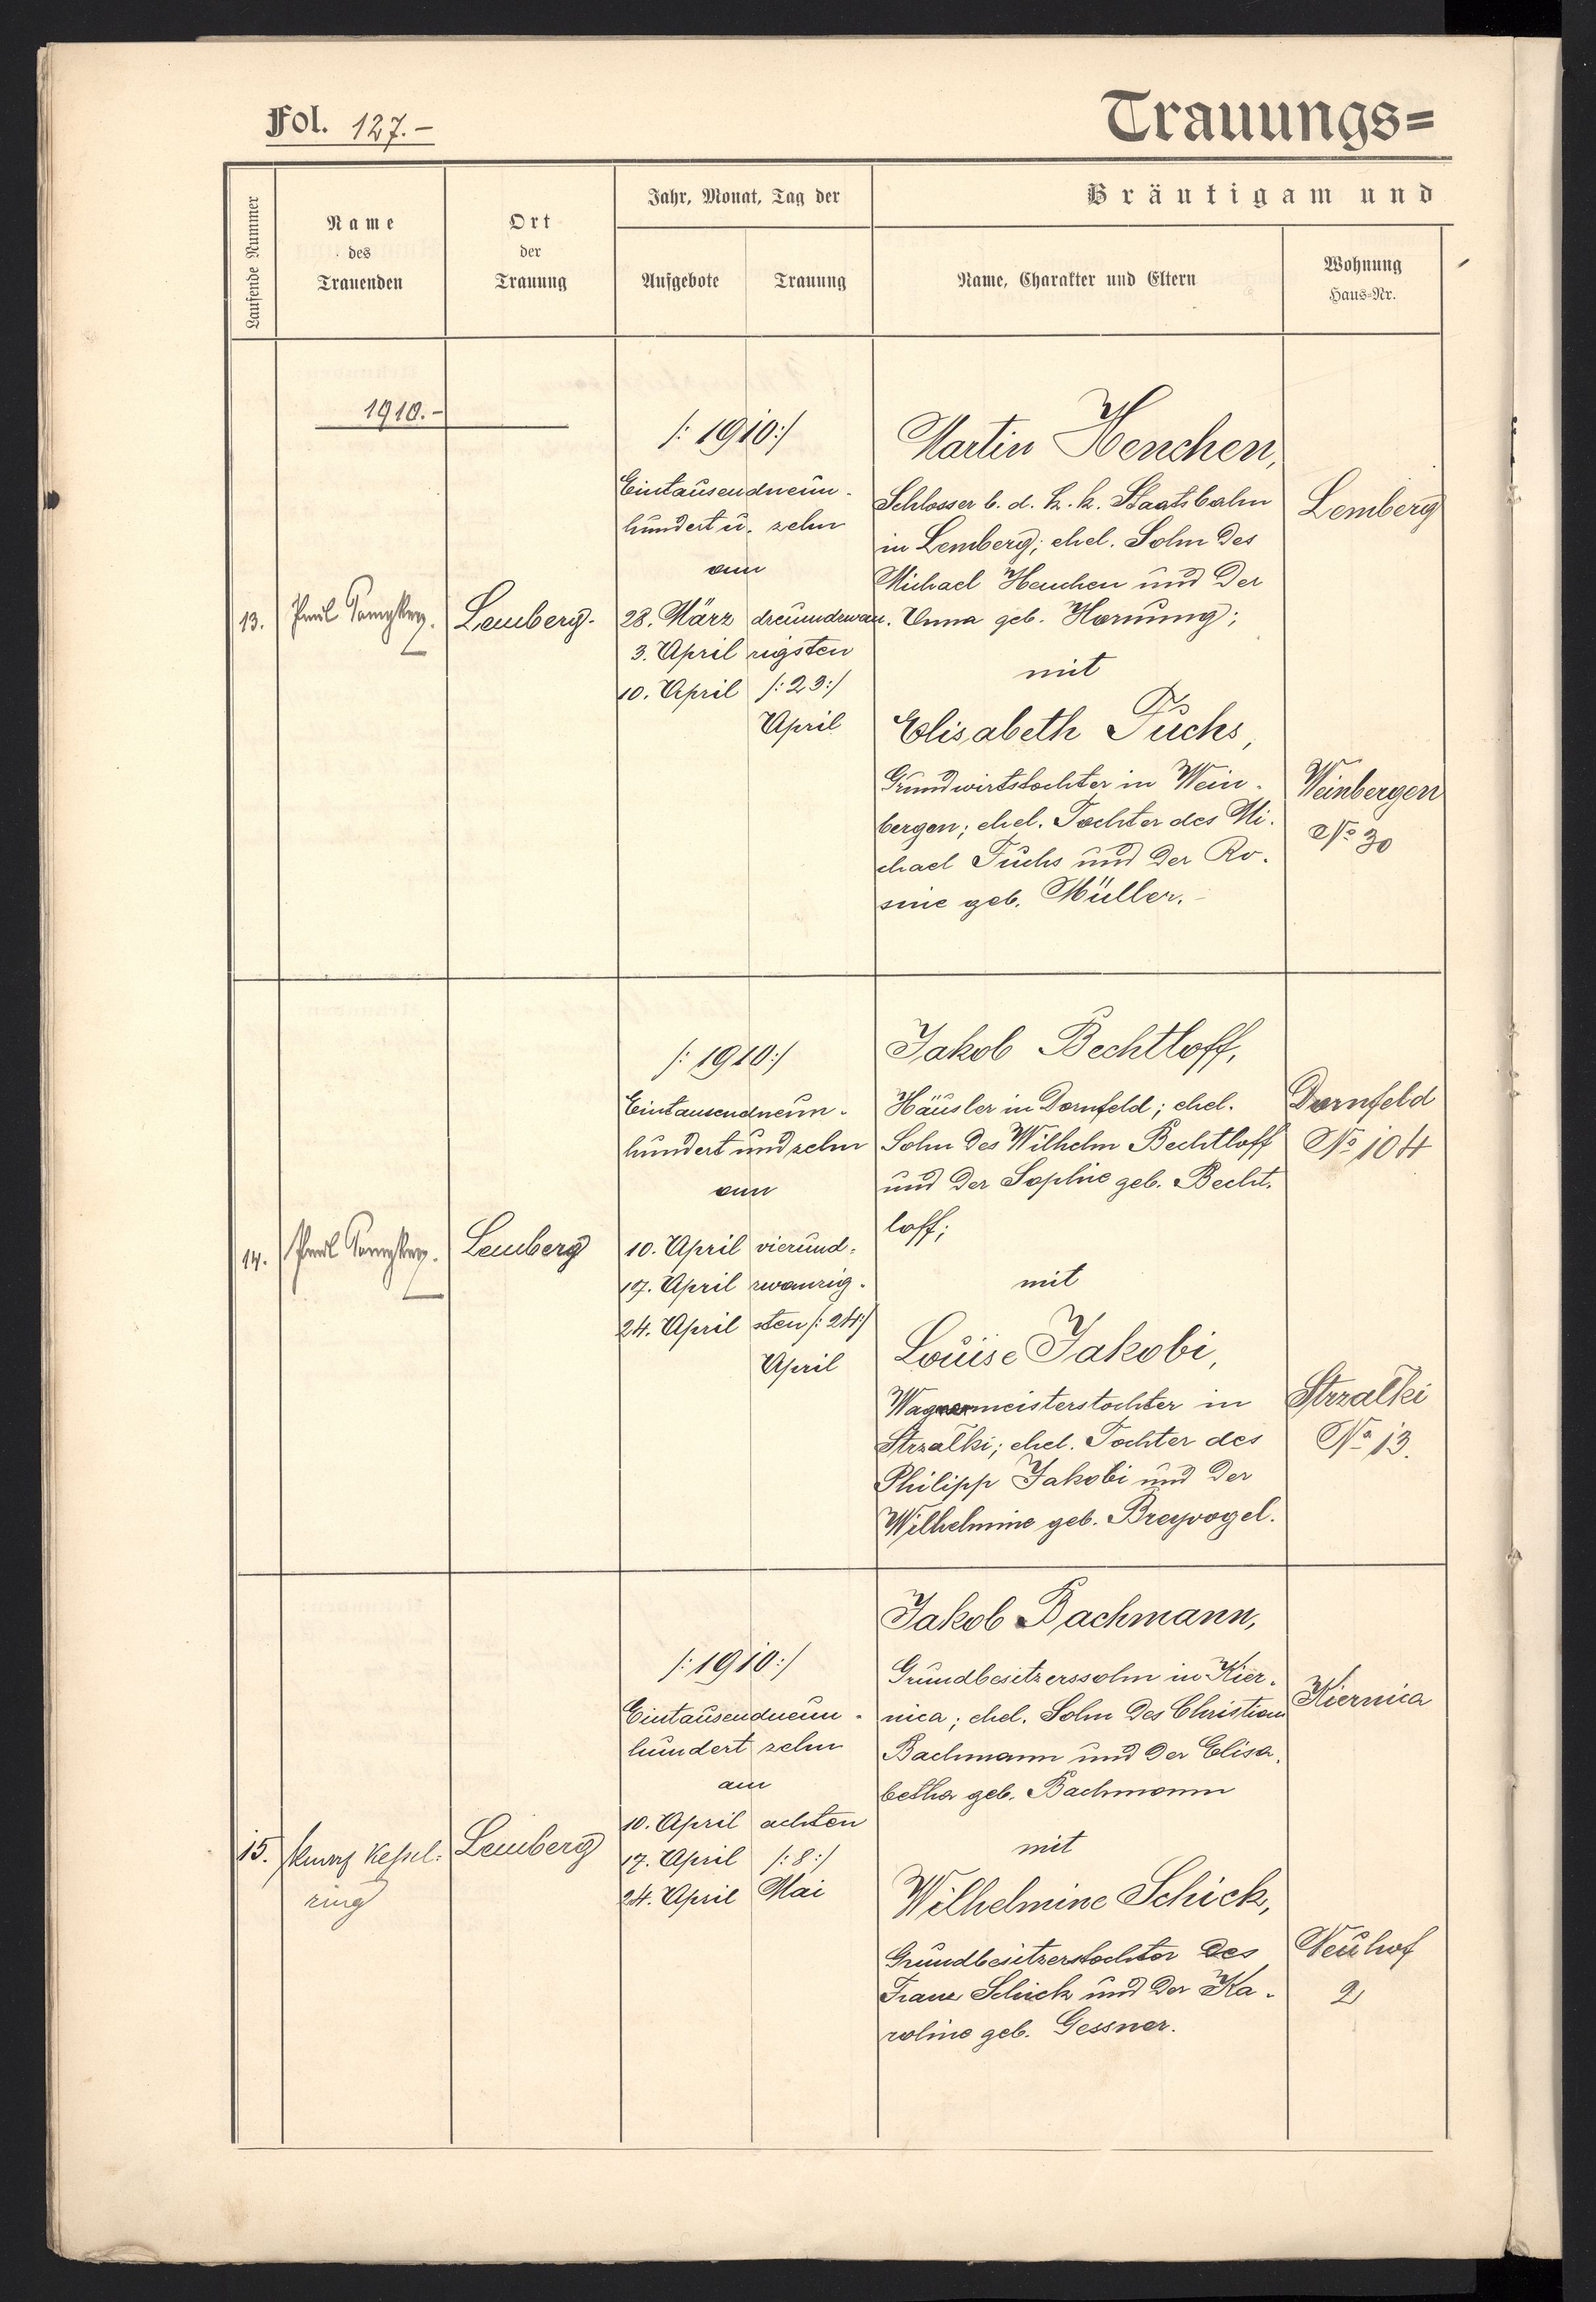 Fol. 127.-
Trauungs=
Laufende Nummer
Name
des
Trauenden
Ort
der
Trauung
Jahr, Monat, Tag der
Aufgebote
Trauung
Bräutigam und
Name, Charakter und Eltern
Wohnung
Haus-Nr.
1910.-
13.
Paul
Lemberg.
/: 1910:/
Eintausendneun-
hundert u. zehn
am
28. März
3. April
10. April
dreiundzwan-
zigsten
/: 23:/
April
Martin Henchen,
Schlosser b. d. k. k. Staatsbahn
in Lemberg; ehel. Sohn des
Michael Henchen und der
Anna geb. Hornung;
mit
Elisabeth Fuchs,
Grundwirtstochter in Wein-
bergen; ehel. Tochter des Mi-
chael Fuchs und der Ro-
sine geb. Müller.-
Lemberg
Weinbergen
No 30
14.
Paul
Lemberg
/: 1910:/
Eintausendneun-
hundert und zehn
am
10. April
17. April
24. April
vierund-
zwanzig-
sten /: 24:/
April
Jakob Bechtloff,
Häusler in Dornfeld; ehel.
Sohn des Wilhelm Bechtloff
und der Sophie geb. Becht-
loff;
mit
Louise Jakobi,
Wagnermeisterstochter in
Strzałki; ehel. Tochter des
Philipp Jakobi und der
Wilhelmine geb. Breyvogel.
Dornfeld
No 104
Strzałki
No 13.
15.
Kessel-
ring
Lemberg
/: 1910:/
Eintausendneun-
hundert zehn
am
10. April
17. April
24. April
achten
/: 8:/
Mai
Jakob Bachmann,
Grundbesitzerssohn in Kier-
nica; ehel. Sohn des Christian
Bachmann und der Elisa-
betha geb. Bachmann
mit
Wilhelmine Schick,
Grundbesitzerstochter des
Franz Schick und der Ka-
roline geb. Gessner.
Kiernica
Neuhof
2